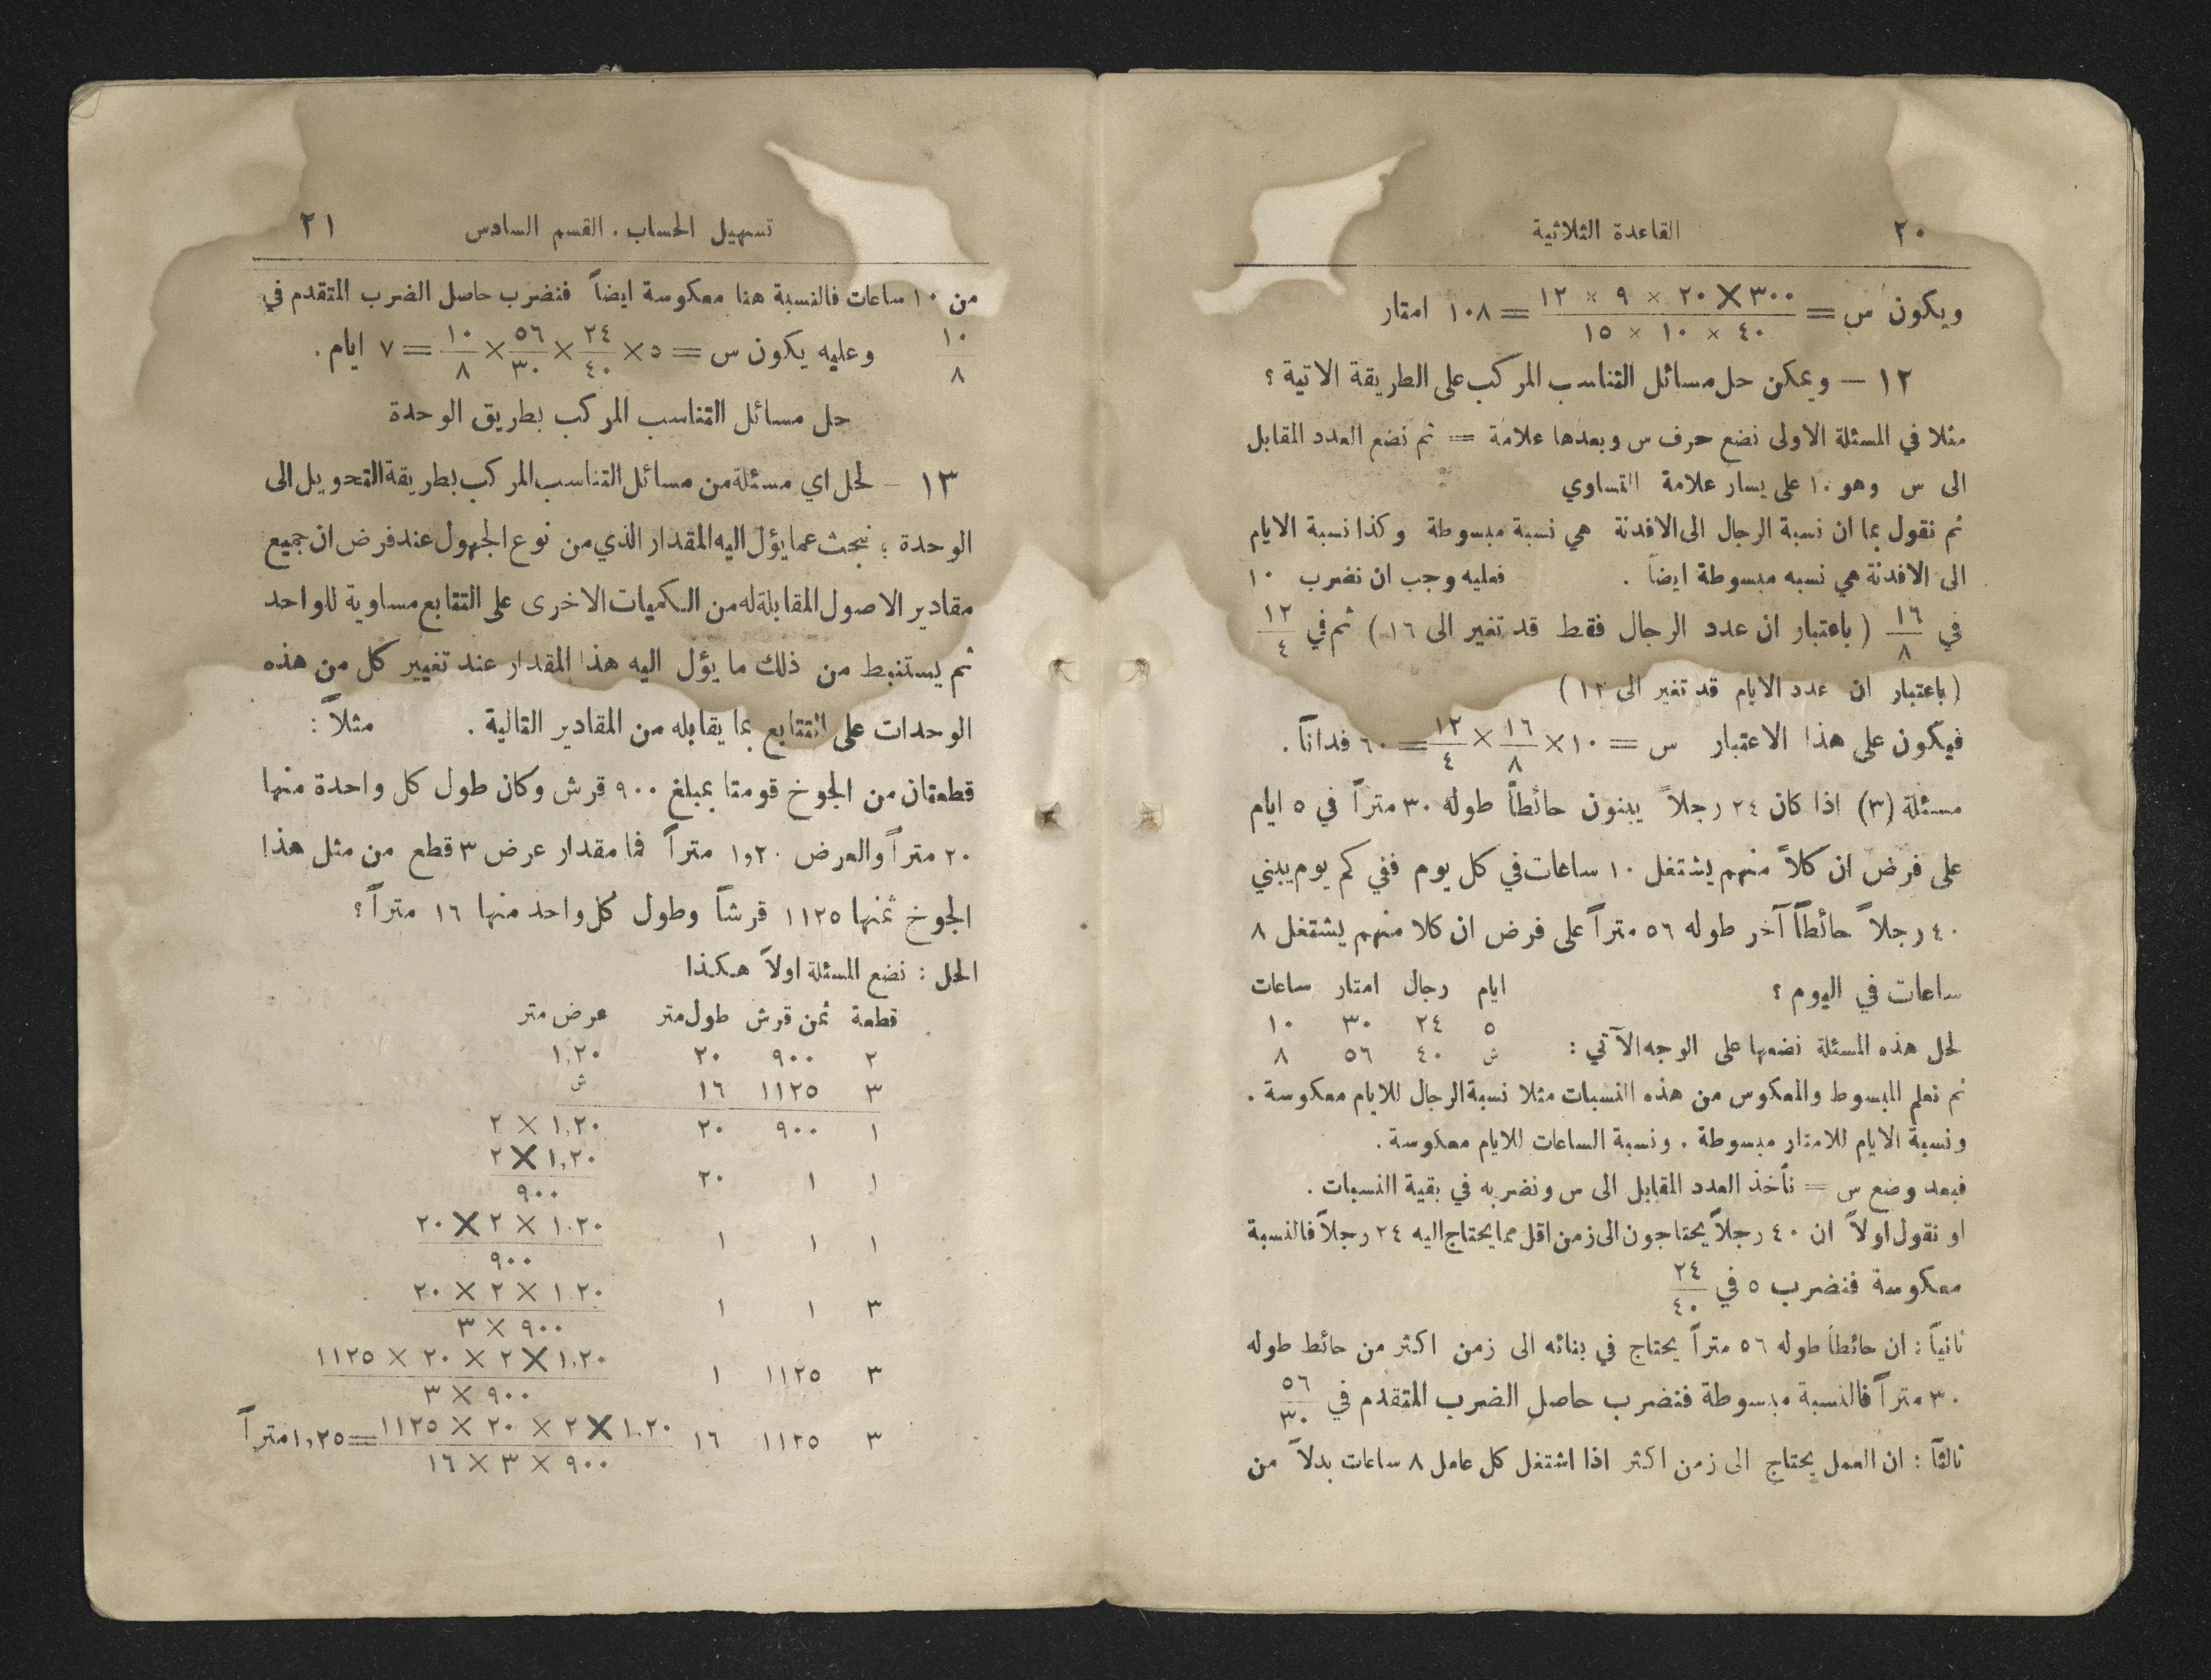 ٢٠ القاعدة الثلاثية
ويكون س = ٣٠٠ × ٢٠ × ٩ × ١٢ / ٤٠ × ١٠ × ١٥ = ١٠٨ امتار
١٢ — ويمكن حل مسائل التناسب المركب على الطريقة الاتية ؟
مثلا في المسئلة الاولى نضع حرف س وبعدها علامة = ثم نضع العدد المقابل
الى س وهو ١٠ على يسار علامة التساوي
ثم نقول بما ان نسبة الرجال الى الافدنة هي نسبة مبسوطة وكذا نسبة الايام
الى الافدنة هي نسبه مبسوطة ايضاً . فعليه وجب ان نضرب ١٠
في ١٦/٨ ( باعتبار ان عدد الرجال فقط قد تغير الى ١٦ ) ثم في ١٢/٤
( باعتبار ان عدد الايام قد تغير الى ١٢ )
فيكون على هذا الاعتبار س = ١٠ × ١٦/٨ × ١٢/٤ = ٦٠ فداناً .
مسئلة (٣) اذا كان ٢٤ رجلاً يبنون حائطاً طوله ٣٠ متراً في ٥ ايام
على فرض ان كلاً منهم يشتغل ١٠ ساعات في كل يوم ففي كم يوم يبني
٤٠ رجلاً حائطاً آخر طوله ٥٦ متراً على فرض ان كلا منهم يشتغل ٨
ساعات في اليوم ؟ ايام رجال امتار ساعات
٥ ٢٤ ٣٠ ١٠
لحل هذه المسئلة نضعها على الوجه الآتي : س ٤٠ ٥٦ ٨
ثم نعلم المبسوط والمعكوس من هذه النسبات مثلا نسبة الرجال للايام معكوسة .
ونسبة الايام للامتار مبسوطة . ونسبة الساعات للايام معكوسة .
فبعد وضع س = نأخذ العدد المقابل الى س ونضربه في بقية النسبات .
او نقول اولاً ان ٤٠ رجلاً يحتاجون الى زمن اقل مما يحتاج اليه ٢٤ رجلاً فالنسبة
معكوسة فنضرب ٥ في ٢٤/٤٠
ثانياً : ان حائطاً طوله ٥٦ متراً يحتاج في بنائه الى زمن اكثر من حائط طوله
٣٠ متراً فالنسبة مبسوطة فنضرب حاصل الضرب المتقدم في ٥٦/٣٠
ثالثاً : ان العمل يحتاج الى زمن اكثر اذا اشتغل كل عامل ٨ ساعات بدلاً من
تسهيل الحساب . القسم السادس ٢١
من ١٠ ساعات فالنسبة هنا معكوسة ايضاً فنضرب حاصل الضرب المتقدم في
١٠/٨ وعليه يكون س = ٥ × ٢٤/٤٠ × ٥٦/٣٠ × ١٠/٨ = ٧ ايام .
حل مسائل التناسب المركب بطريق الوحدة
١٣ — لحل اي مسئلة من مسائل التناسب المركب بطريقة التحويل الى
الوحدة ؛ نبحث عما يؤل اليه المقدار الذي من نوع المجهول عند فرض ان جميع
مقادير الاصول المقابلة له من الكميات الاخرى على التتابع مساوية للواحد
ثم يستنبط من ذلك ما يؤل اليه هذا المقدار عند تغيير كل من هذه
الوحدات على التتابع بما يقابله من المقادير التالية . مثلاً :
قطعتان من الجوخ قومتا بمبلغ ٩٠٠ قرش وكان طول كل واحدة منها
٢٠ متراً والعرض ١,٢٠ متراً فما مقدار عرض ٣ قطع من مثل هذا
الجوخ ثمنها ١١٢٥ قرشاً وطول كل واحد منها ١٦ متراً ؟
الحل : نضع المسئلة اولاً هكذا
قطعة ثمن قرش طول متر عرض متر
٢ ٩٠٠ ٢٠ ١,٢٠
٣ ١١٢٥ ١٦ س
١ ٩٠٠ ٢٠ ١,٢٠ × ٢
١ ١ ٢٠ ١,٢٠ × ٢ / ٩٠٠
١ ١ ١ ١,٢٠ × ٢ × ٢٠ / ٩٠٠
٣ ١ ١ ١,٢٠ × ٢ × ٢٠ / ٩٠٠ × ٣
٣ ١١٢٥ ١ ١,٢٠ × ٢ × ٢٠ × ١١٢٥ / ٩٠٠ × ٣
٣ ١١٢٥ ١٦ ١,٢٠ × ٢ × ٢٠ × ١١٢٥ / ٩٠٠ × ٣ × ١٦ = ١,٢٥ متراً